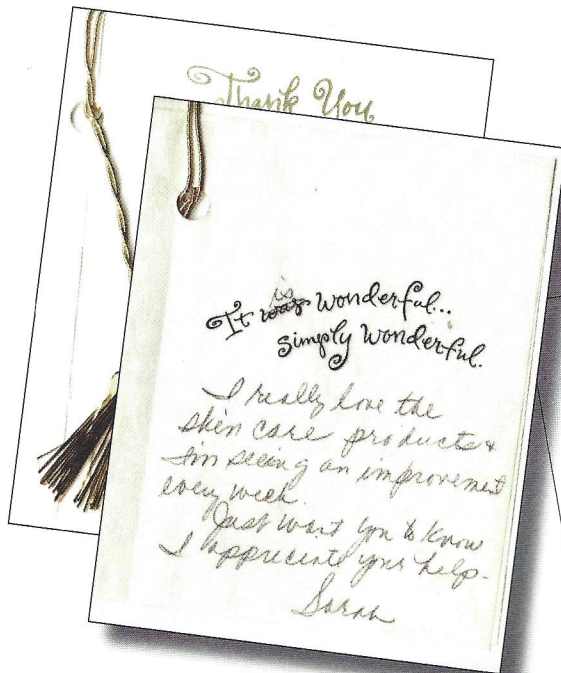 Thank You
is
It was wonderful...
simply wonderful.
I really love the
skin care products &
I'm seeing an improvement
every week.
Just want you to know
I appreciate your help.
Sarah